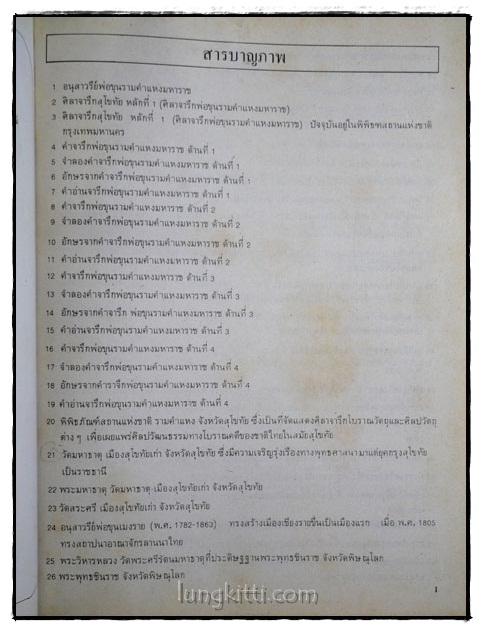 สารบาญภาพ
1 อนุสาวรีย์พ่อขุนรามคำแหงมหาราช
2 ศิลาจารึกสุโขทัย หลักที่ 1 (ศิลาจารึกพ่อขุนรามคำแหงมหาราช)
3 ศิลาจารึกสุโขทัย หลักที่ 1 (ศิลาจารึกพ่อขุนรามคำแหงมหาราช) ปัจจุบันอยู่ในพิพิธฑสถานแห่งชาติ
กรุงเทพมหานคร
4 คำจารึกพ่อขุนรามคำแหงมหาราช ด้านที่ 1
5 จำลองคำจารึกพ่อขุนรามคำแหงมหาราช ด้านที่ 1
6 อักษรจากคำจารึกพ่อขุนรามคำแหงมหาราช ด้านที่ 1
7 คำอ่านจารึกพ่อขุนรามคำแหงมหาราช ด้านที่ 1
8 คำจารึกพ่อขุนรามคำแหงมหาราช ด้านที่ 2
9 จำลองคำจารึกพ่อขุนรามคำแหงมหาราช ด้านที่ 2
10 อักษรจากคำจารึกพ่อขุนรามคำแหงมหาราช ด้านที่ 2
11 คำอ่านจารึกพ่อขุนรามคำแหงมหาราช ด้านที่ 2
12 คำจารึกพ่อขุนรามคำแหงมหาราช ด้านที่ 3
13 จำลองคำจารึกพ่อขุนรามคำแหงมหาราช ด้านที่ 3
14 อักษรจากคำจารึก พ่อขุนรามคำแหงมหาราช ด้านที่ 3
15 คำอ่านจารึกพ่อขุนรามคำแหงมหาราช ด้านที่ 3
16 คำจารึกพ่อขุนรามคำแหงมหาราช ด้านที่ 4
17 จำลองคำจารึกพ่อขุนรามคำแหงมหาราช ด้านที่ 4
18 อักษรจากคำจารึกพ่อขุนรามคำแหงมหาราช ด้านที่ 4
19 คำอ่านจารึกพ่อขุนรามคำแหงมหาราช ด้านที่ 4
20 พิพิธภัณฑ์สถานแห่งชาติ รามคำแหง จังหวัดสุโขทัย ซึ่งเป็นที่จัดแสดงศิลาจารึกโบราณวัตถุและศิลปวัตถุ
ต่าง ๆ เพื่อเผยแพร่ศิลปวัฒนธรรมทางโบราณคดีของชาติไทยในสมัยสุโขทัย
21 วัดมหาธาตุ เมืองสุโขทัยเก่า จังหวัดสุโขทัย ซึ่งมีความเจริญรุ่งเรืองทางพุทธศาสนามาแต่ยุคกรุงสุโขทัย
เป็นราชธานี
22 พระมหาธาตุ วัดมหาธาตุ เมืองสุโขทัยเก่า จังหวัดสุโขทัย
23 วัดสระศรี เมืองสุโขทัยเก่า จังหวัดสุโขทัย
24 อนุสาวรีย์พ่อขุนเมงราย (พ.ศ. 1782-1863) ทรงสร้างเมืองเชียงรายขึ้นเป็นเมืองแรก เมื่อ พ.ศ. 1805
ทรงสถาปนาอาณาจักรลานนาไทย
25 พระวิหารหลวง วัดพระศรีรัตนมหาธาตุที่ประดิษฐฐานพระพุทธชินราช จังหวัดพิษณุโลก
26 พระพุทธชินราช จังหวัดพิษณุโลก
1
lungkitti.com